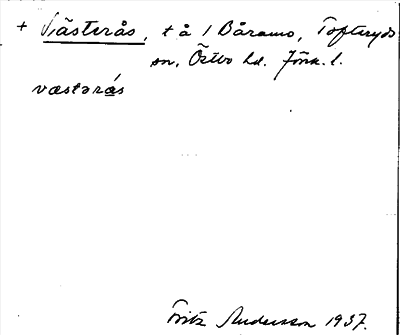 + Västerås, t å 1 Båramo, Tofteryds
sn, Östbo hd. Jönk. l.
væstərås
Fritz Andersson 1937.